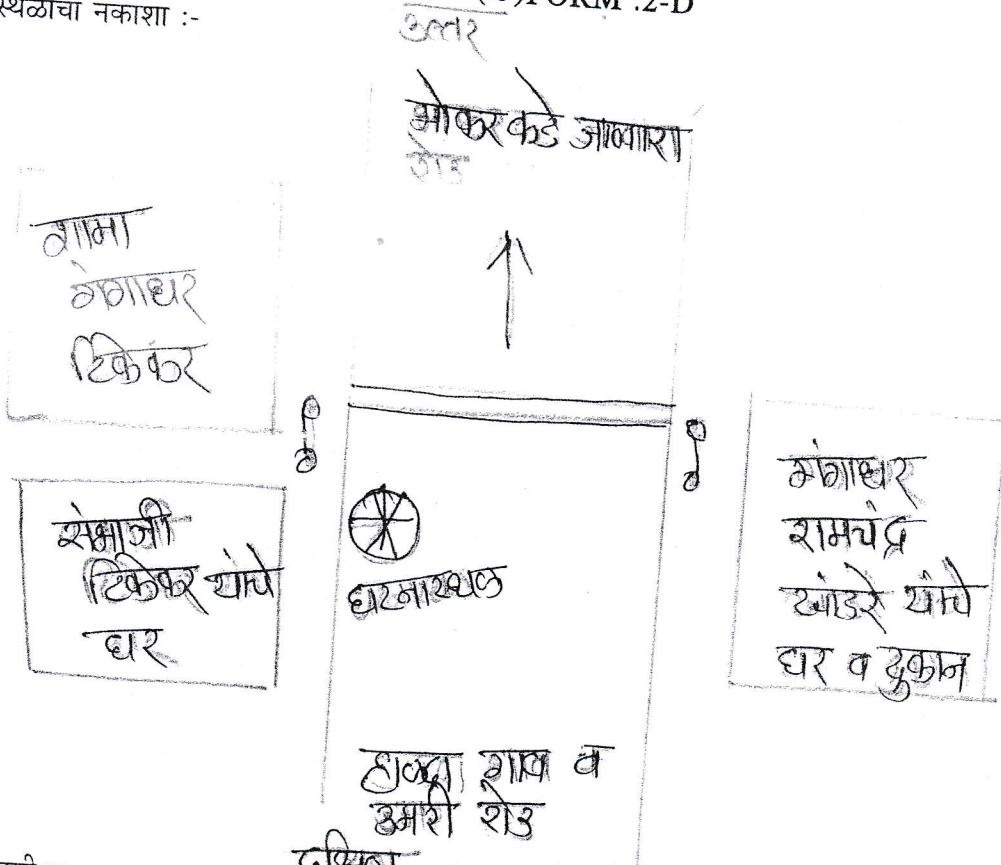 स्थळाचा नकाशा :-
FORM :2-D
उत्तर
भोकरकडे जाणारा
रोड
शामा
गंगाधर
टिकेकर
संभाजी
टिकेकर यांचे
घर
घटनास्थळ
गंगाधर
रामचंद्र
खांडरे यांचे
घर व दुकान
हाळदा गाव व
उमरी रोड
दक्षिण